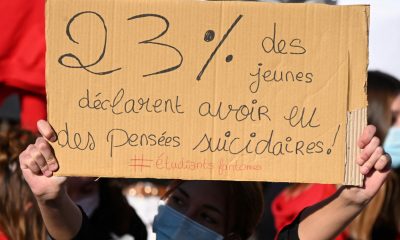 23% des
jeunes
déclarent avoir eu
des pensées suicidaires!
#étudiantsfantômes